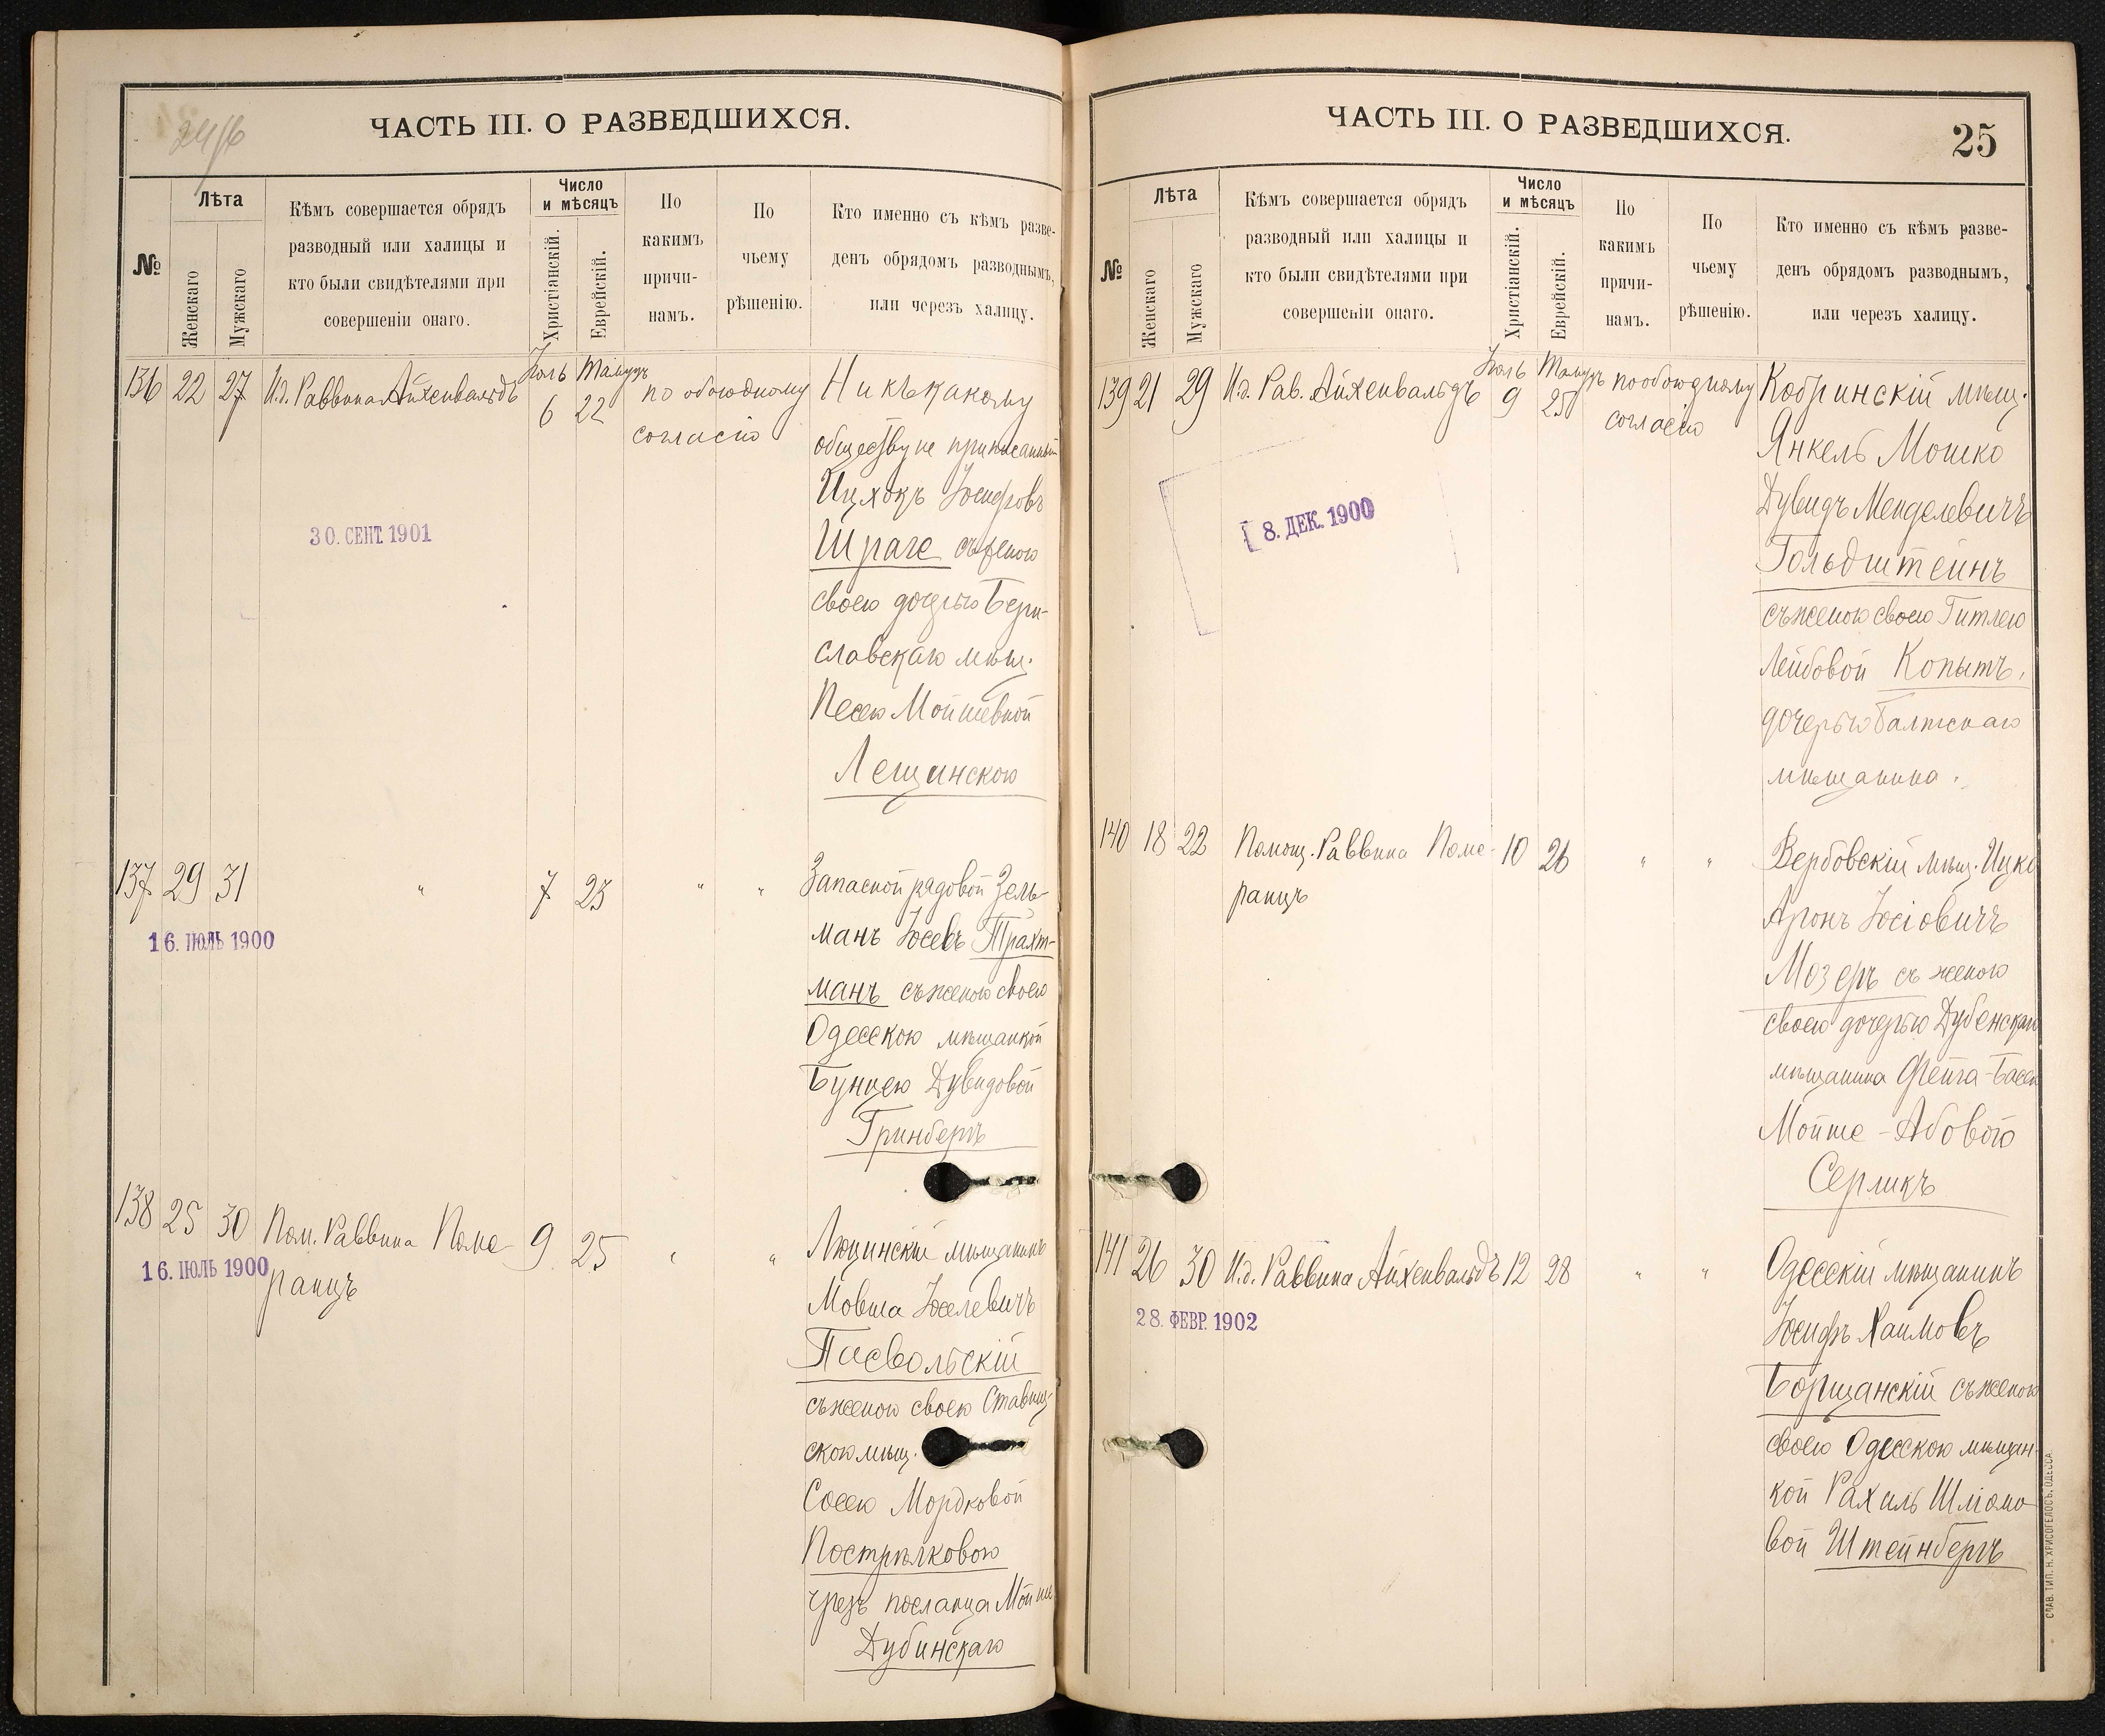 24/6
ЧАСТЬ III. О РАЗВЕДШИХСЯ.
№
Лѣта
Женскаго
Мужскаго
Кѣмъ совершается обрядъ
разводный или халицы и
кто были свидѣтелями при
совершеніи онаго.
Число
и мѣсяцъ
Христіанскій.
Еврейскій.
По
какимъ
причи-
намъ.
По
чьему
рѣшенію.
Кто именно съ кѣмъ разве-
денъ обрядомъ разводнымъ,
или черезъ халицу.
136 22 27 И.д. Раввина Айхенвальдъ
Іюль 6
Тамузъ 22
по обоюдному
согласію
Ни къ какому
обществу не приписанный
Ицхокъ Іосифовъ
Шраге съ женою
своею дочерью Бери-
славскаго мѣщ.
Песею Мойшевной
Лещинскою
30. СЕНТ. 1901
137 29 31 " 7 23 " "
16. ІЮЛЬ 1900
Запасной рядовой Зель-
манъ Іосевъ Трахт-
манъ съ женою своею
Одесскою мѣщанкой
Бунцею Дувидовой
Гринбергъ
138 25 30 Пом. Раввина Поме-
ранцъ
9 25 " "
16. ІЮЛЬ 1900
Люцинскій мѣщанинъ
Мовша Іоселевичъ
Пасвольскій
съ женою своею Ставищ-
скою мѣщ.
Сосею Мордковой
Пострѣлковою
чрезъ посланца Мойше
Дубинскаго
ЧАСТЬ III. О РАЗВЕДШИХСЯ.
25
№
Лѣта
Женскаго
Мужскаго
Кѣмъ совершается обрядъ
разводный или халицы и
кто были свидѣтелями при
совершеніи онаго.
Число
и мѣсяцъ
Христіанскій.
Еврейскій.
По
какимъ
причи-
намъ.
По
чьему
рѣшенію.
Кто именно съ кѣмъ разве-
денъ обрядомъ разводнымъ,
или черезъ халицу.
139 21 29 И.д. Рав. Айхенвальдъ
Іюль 9
Тамузъ 25
по обоюдному
согласію
Кобринскій мѣщ.
Янкель Мошко
Дувидъ Менделевичъ
Гольдштейнъ
съ женою своею Гитлею
Лейбовой Копытъ,
дочерью Балтскаго
мѣщанина.
8. ДЕК. 1900
140 18 22 Помощ. Раввина Поме-
ранцъ
10 26 " "
Вербовскій мѣщ. Ицко
Аронъ Іосіовичъ
Мозеръ съ женою
своею дочерью Дубенскаго
мѣщанина Фейга-Басей
Мойше-Абовою
Серликъ
141 26 30 И.д. Раввина Айхенвальдъ 12 28 " "
28. ФЕВР. 1902
Одесскій мѣщанинъ
Іосифъ Хаимовъ
Борщанскій съ женою
своею Одесскою мѣщан-
кой Рахиль Шліомо-
вой Штейнбергъ
СЛАВ. ТИП. Н. ХРИСОГЕЛОСЪ, ОДЕССА.